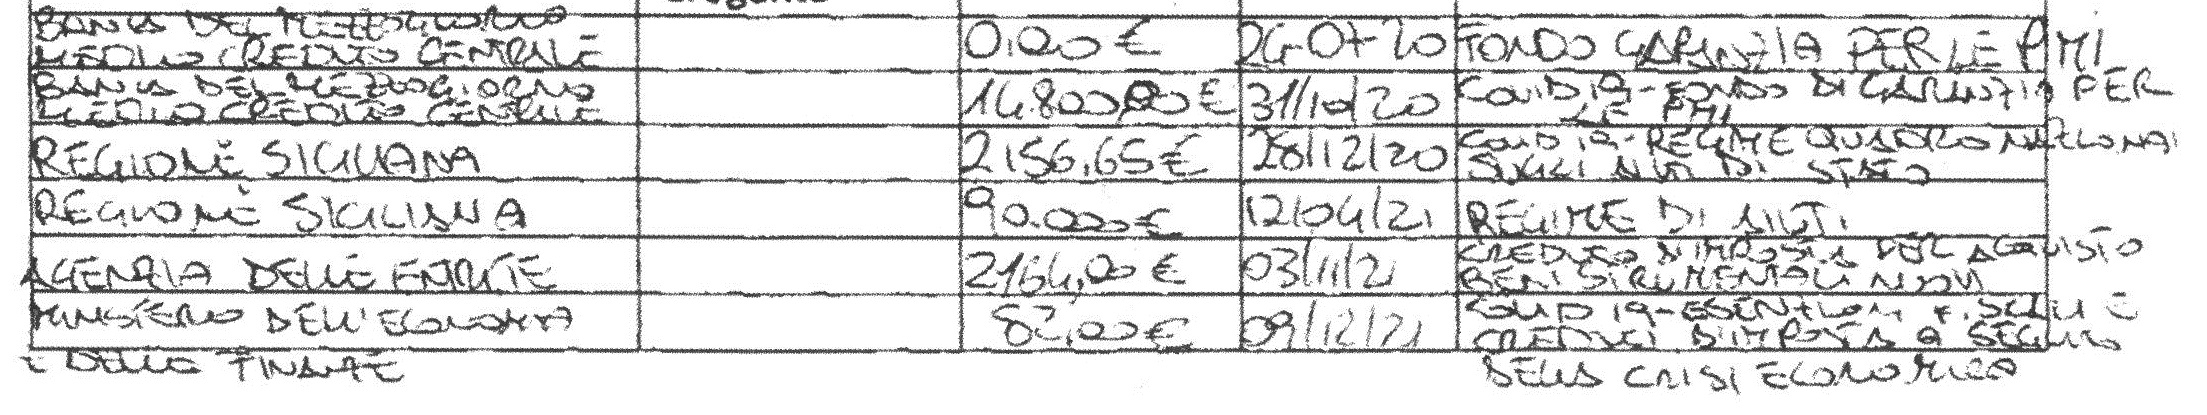 BANCA DEL MEZZOGIORNO
MEDIO CREDITO CENTRALE 0,00 € 24-07-20 FONDO GARANZIA PER LE PMI
BANCA DEL MEZZOGIORNO
MEDIO CREDITO CENTRALE 14.800,00 € 31/10/20 COVID 19-FONDO DI GARANZIA PER
LE PMI
REGIONE SICILIANA 2156,65 € 28/12/20 COVID 19-REGIME QUADRO NAZIONAL
SUGLI AIUTI DI STATO
REGIONE SICILIANA 90.000 € 12/04/21 REGIME DI AIUTI
AGENZIA DELLE ENTRATE 2164,00 € 03/11/21 CREDITO D'IMPOSTA PER ACQUISTO
BENI STRUMENTALI NUOVI
MINISTERO DELL'ECONOMIA
E DELLE FINANZE 82,00 € 09/12/21 COVID 19-ESENZIONI FISCALI E
CREDITI D'IMPOSTA A SEGUITO
DELLA CRISI ECONOMICA